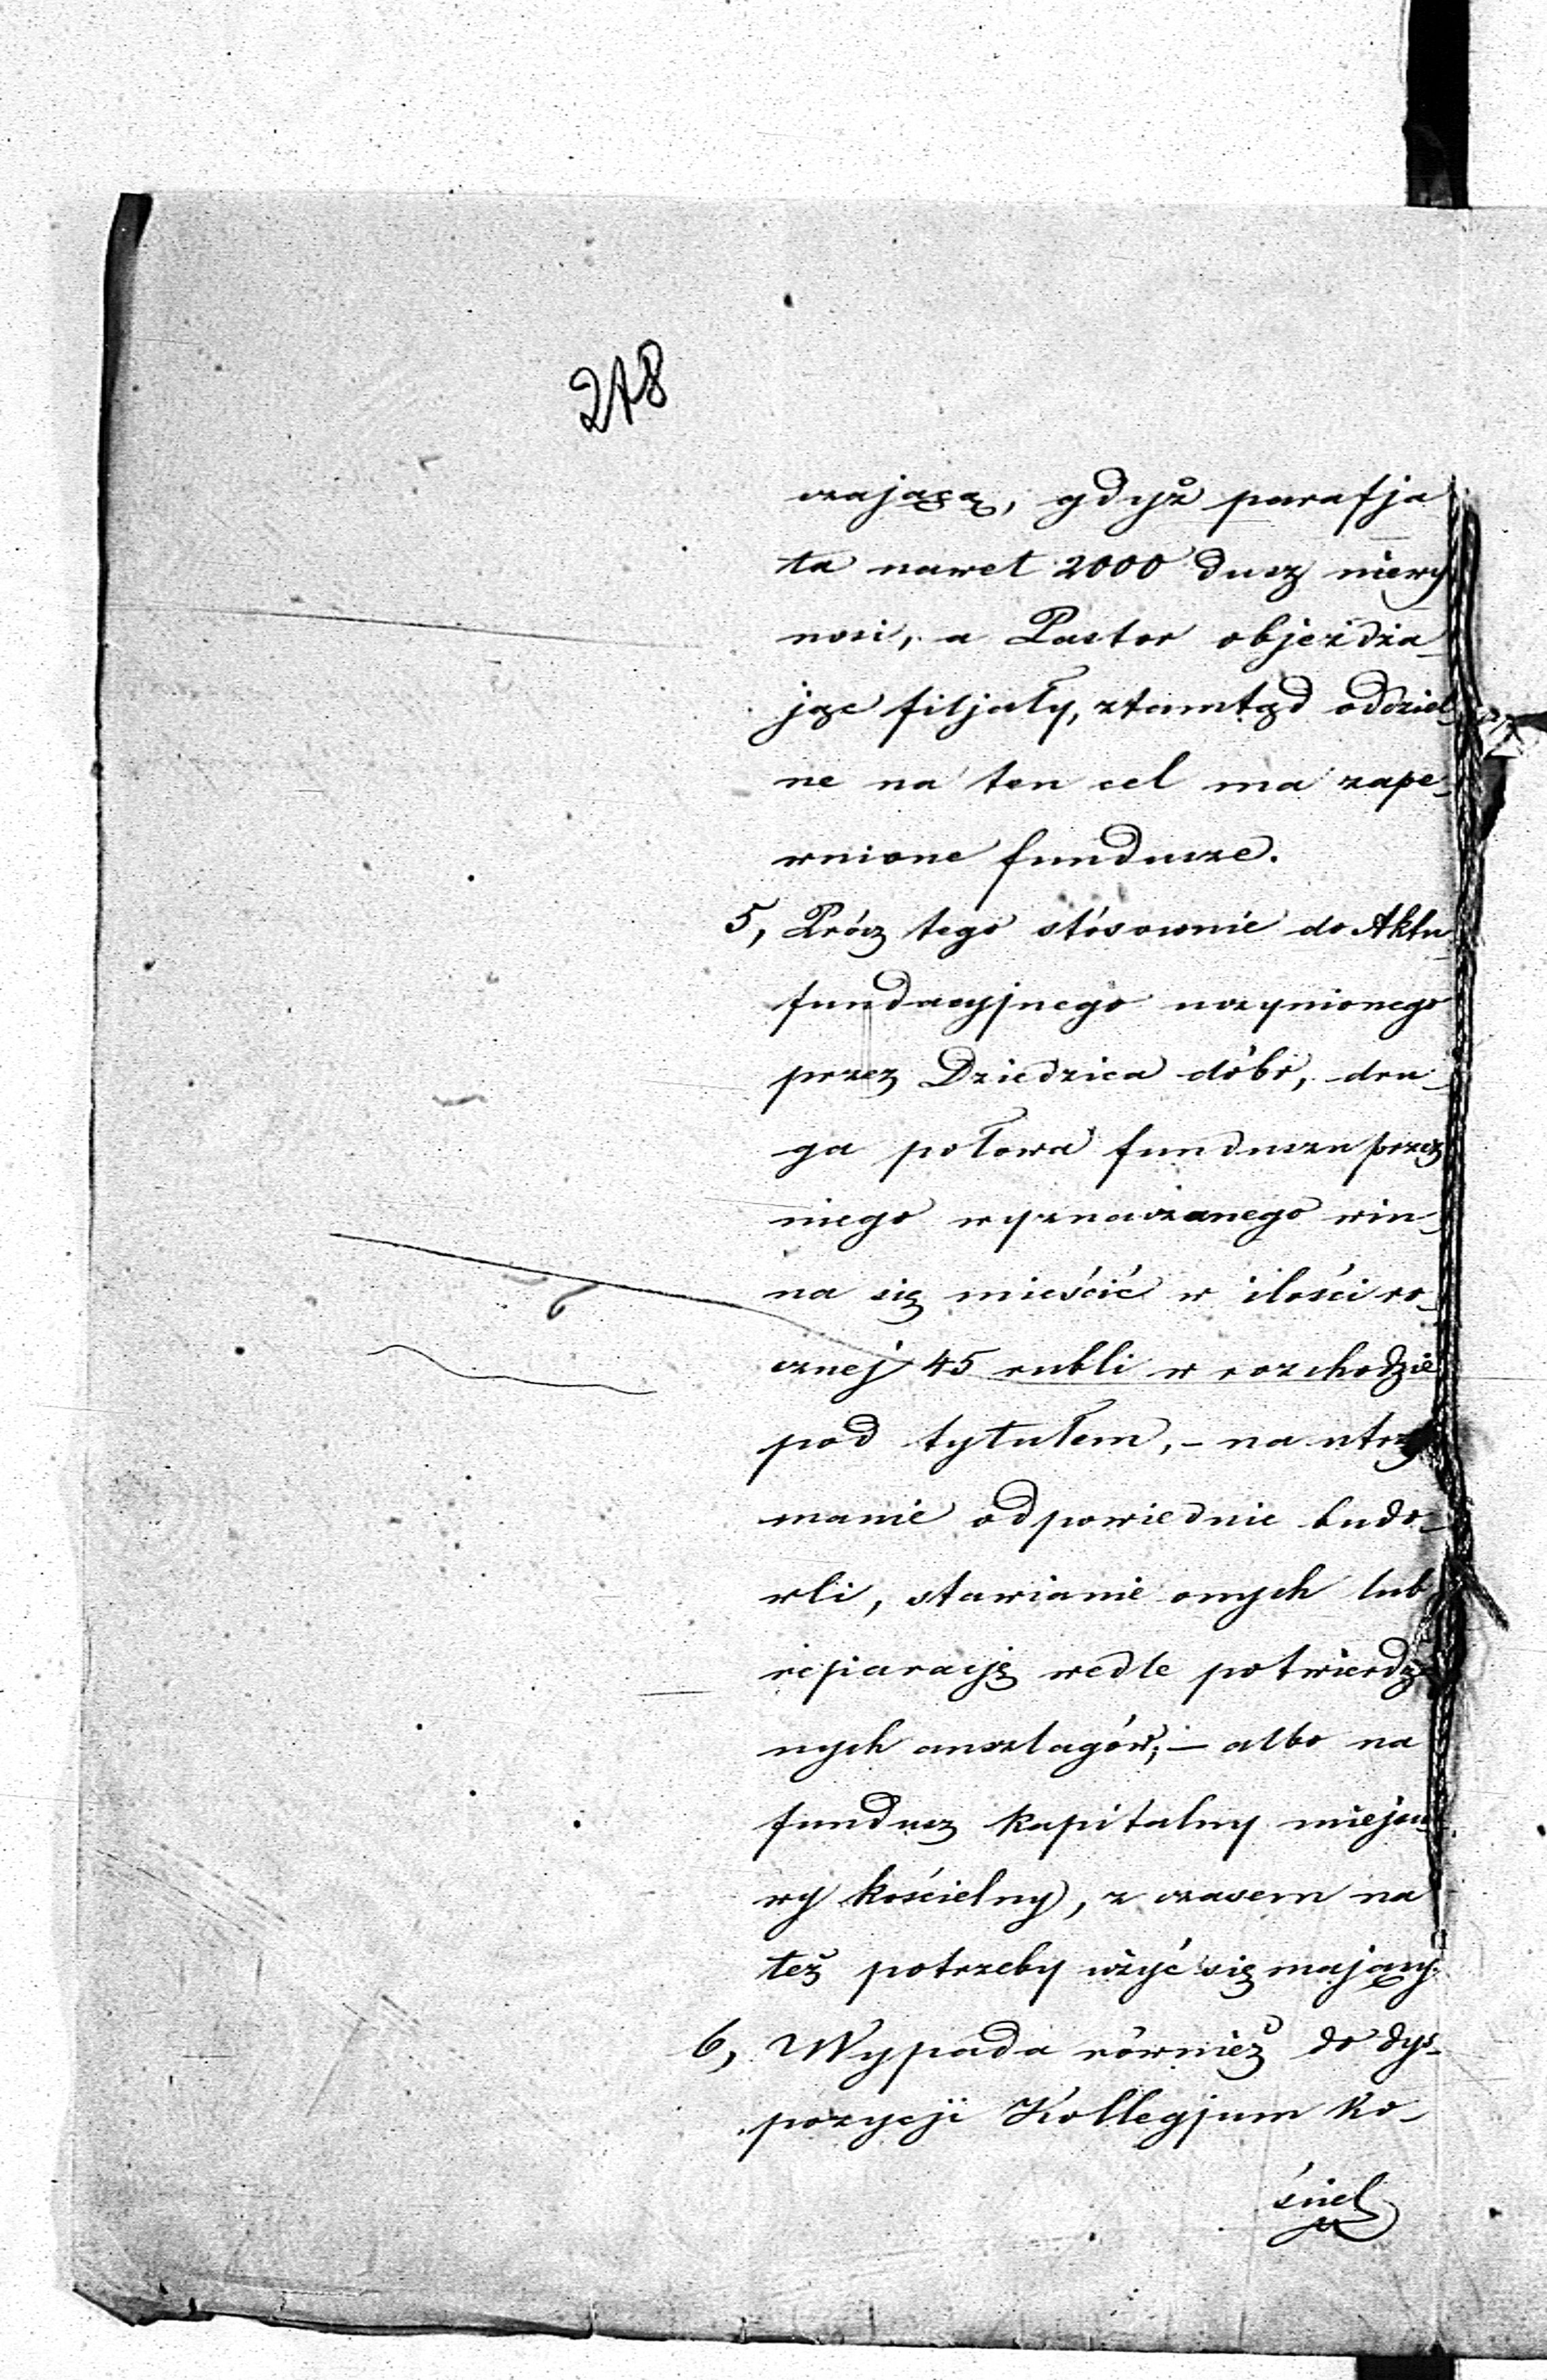 278
czającą, gdyż parafja
ta nawet 2000 dusz niewy
nosi, a Pastor objeżdża-
jąc filjały, ztamtąd oddziel
ne na ten cel ma zape-
wnione fundusze.
5, Prócz tego stósownie do Aktu
fundacyjnego uczynionego
przez Dziedzica dóbr, dru-
ga połowa funduszu przez
niego wyznaczanego win-
na się mieścić w ilości ro-
cznej 45 rubli w rozchodzie
pod tytułem, - na utrzy
manie odpowiednie budo-
wli, stawianie onych lub
reparację wedle potwierdzo
nych anszlagów; - albo na
fundusz kapitalny miejsco
wy kościelny, z czasem na
też potrzeby użyć się mający.
6, Wypada również do dys-
pozycji Kollegjum ko-
ściel